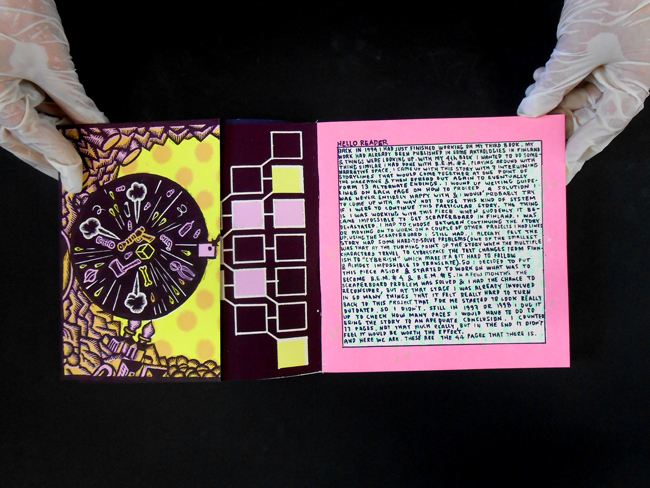 HELLO READER
BACK IN 1994 I HAD JUST FINISHED WORKING ON MY THIRD BOOK. MY
WORK HAD ALREADY BEEN PUBLISHED IN SOME ANTHOLOGIES IN FINLAND
& THINGS WERE LOOKING UP. WITH MY 4th BOOK I WANTED TO DO SOME-
THING SIMILAR I HAD DONE WITH B.E.M. #2, PLAYING AROUND WITH
NARRATIVE SPACE. I CAME UP WITH THIS STORY WITH 3 INTERLINING
STORYLINES THAT WOULD COME TOGETHER AT ONE POINT OF
THE NARRATIVE & THEN SPREAD OUT AGAIN TO EVENTUALLY
FORM 13 ALTERNATE ENDINGS. I WOUND UP WRITING GUIDE-
LINES ON EACH PAGE ON HOW TO PROCEED, A SOLUTION I
WAS NEVER ENTIRELY HAPPY WITH & I WOULD PROBABLY TRY
TO COME UP WITH A WAY NOT TO USE THIS KIND OF SYSTEM
IF I WERE TO CONTINUE THIS PARTICULAR STORY. THE THING
IS I WAS WORKING WITH THIS PIECE WHEN SUDDENLY IT BE-
CAME IMPOSSIBLE TO GET SCRAPERBOARD IN FINLAND. I WAS
DEVASTATED. I HAD TO CHOOSE BETWEEN CONTINUING THE STORY
OR MOVING ON TO WORK ON A COUPLE OF OTHER PROJECTS I HAD LINED
UP, USING THE SCRAPERBOARD I STILL HAD. I ALREADY FELT THE
STORY HAD SOME HARD-TO-SOLVE PROBLEMS (ONE OF THE SMALLEST
WAS THAT IN THE TURNING POINT OF THE STORY WHEN THE MULTIPLE
CHARACTERS TRAVEL TO CYBERSPACE THE TEXT CHANGES FROM FINN-
ISH TO "CYBERISH" WHICH MADE IT A BIT HARD TO FOLLOW
& ALMOST IMPOSSIBLE TO TRANSLATE). SO I DECIDED TO PUT
THIS PIECE ASIDE & STARTED TO WORK ON WHAT WAS TO
BECOME B.E.M. #4 & B.E.M. #5. IN A FEW MONTHS THE
SCRAPERBOARD PROBLEM WAS SOLVED & I HAD THE CHANCE TO
RECONSIDER, BUT AT THAT STAGE I WAS ALREADY INVOLVED
IN SO MANY THINGS THAT IT FELT REALLY HARD TO TURN
BACK TO THIS PROJECT THAT FOR ME STARTED TO LOOK REALLY
OUTDATED. SO I DIDN'T. STILL IN 1997 OR 1998 I DUG IT
UP TO CHECK HOW MANY PAGES I WOULD HAVE TO DO TO
BRING THE STORY TO AN ADEQUATE CONCLUSION. I COUNTED
27 PAGES, NOT THAT MUCH REALLY, BUT IN THE END IT DIDN'T
FEEL IT WOULD BE WORTH THE EFFORT.
AND HERE WE ARE. THESE ARE THE 46 PAGES THAT THERE IS.